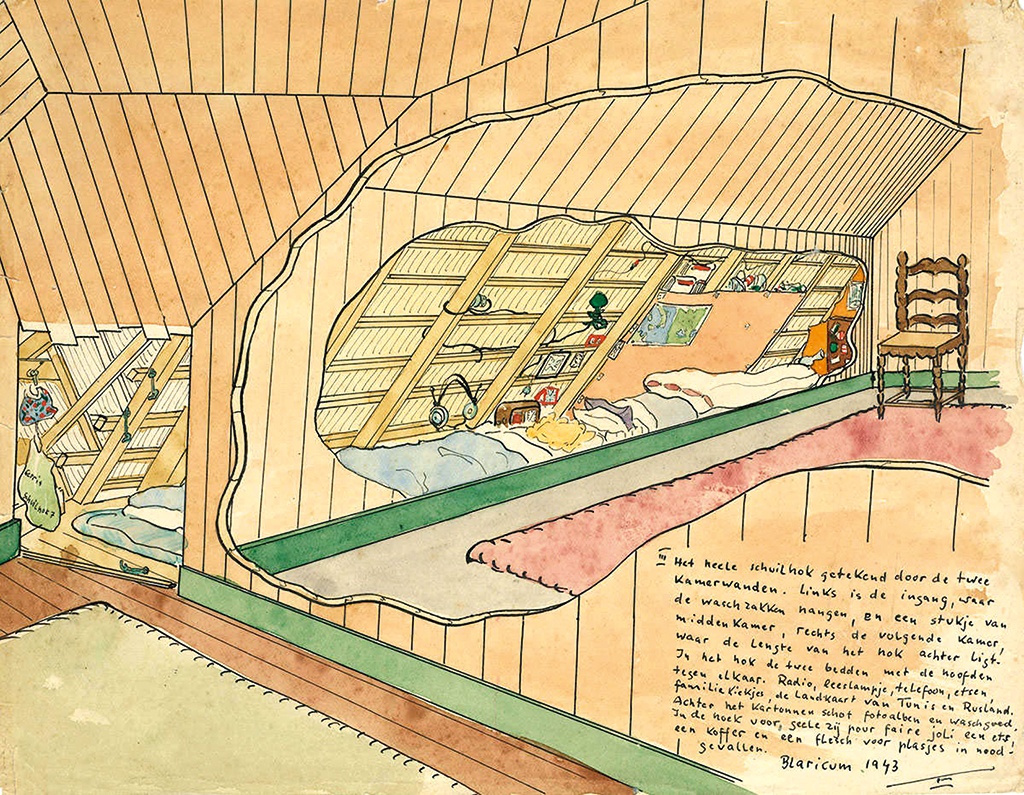 III Het heele schuilhok getekend door de twee
Kamerwanden. Links is de ingang, waar
de waschzakken hangen, en een stukje van
middenkamer, rechts de volgende kamer,
waar de lengte van het hok achter ligt.
In het hok de twee bedden met de hoofden
tegen elkaar. Radio, leeslampje, telefoon, etsen,
familiekiekjes, de Landkaart van Tunis en Rusland.
Achter het Kartonnen schot fotoalben en waschgoed.
In de hoek voor, geele zij pour faire joli een ets,
een koffer en een flesch voor plasjes in nood-
gevallen.
Blaricum 1943
schuilhok